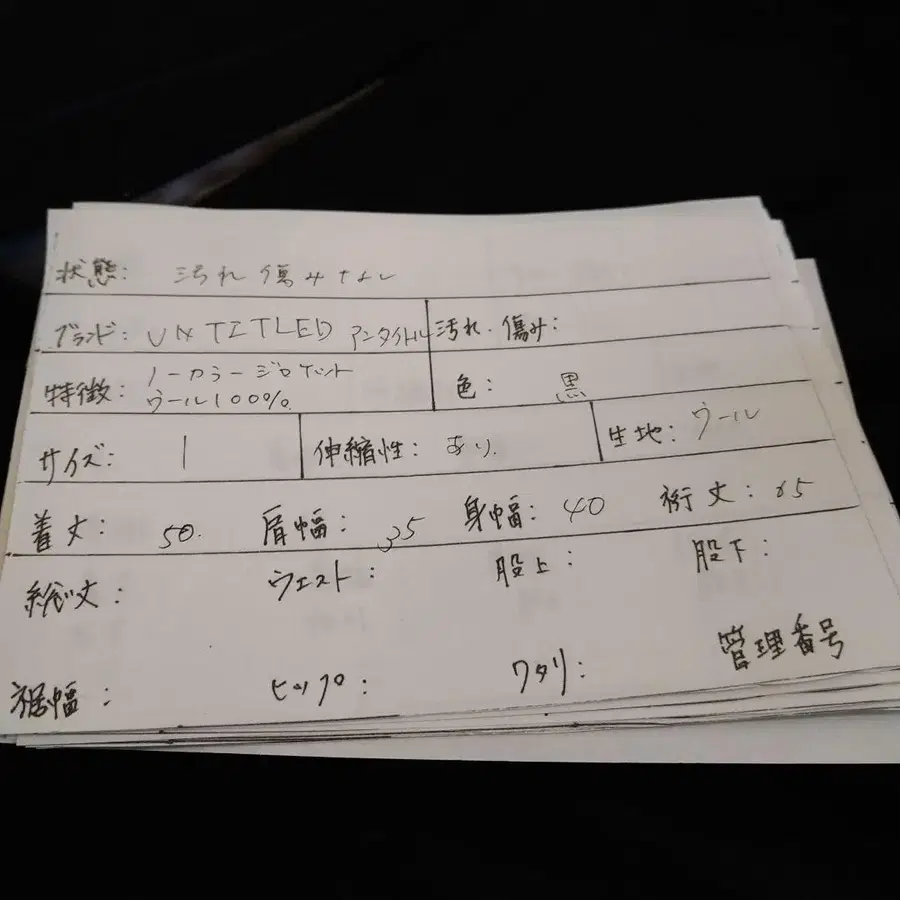 状態: 汚れ傷みなし
ブランド: UNTITLED アンタイトル 汚れ・傷み:
特徴: ノーカラージャケット 色: 黒
ウール100%
サイズ: 1 伸縮性: あり 生地: ウール
着丈: 50. 肩幅: 35 身幅: 40 裄丈:
総丈: ウエスト: 股上: 股下:
裾幅: ヒップ: ワタリ: 管理番号